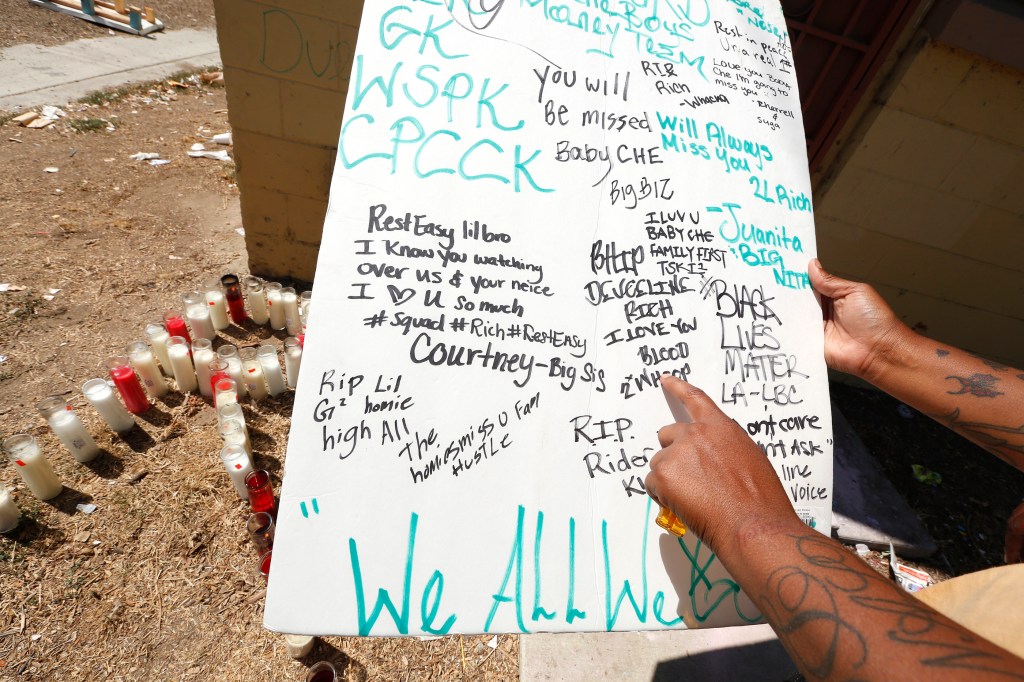 GK
WSPK
CPCCK
Money Team
Rest in peace
RIP
Rich
-Whacko
Love you Baby
Che I'm going to
miss you
-Sherrell
&
Suga
You will
Be missed
Baby CHE
Will Always
Miss You
2L Rich
Big BIZ
-Juanita
BIG
NITA
I LUV U
BABY CHE
FAMILY FIRST
Rest Easy lil bro
I Know You watching
over us & your neice
I ♡ U so much
#Squad #Rich #RestEasy
Courtney-Big Sis
BHIP
RICH
I LOVE YOU
BLOOD
WHOOP
BLACK
LIVES
MATER
LA-LBC
Rip Lil
G² homie
high All
The
homies miss U Fam
HUSTLE
R.I.P.
ont care
nt Ask"
line
Voice
" We All We